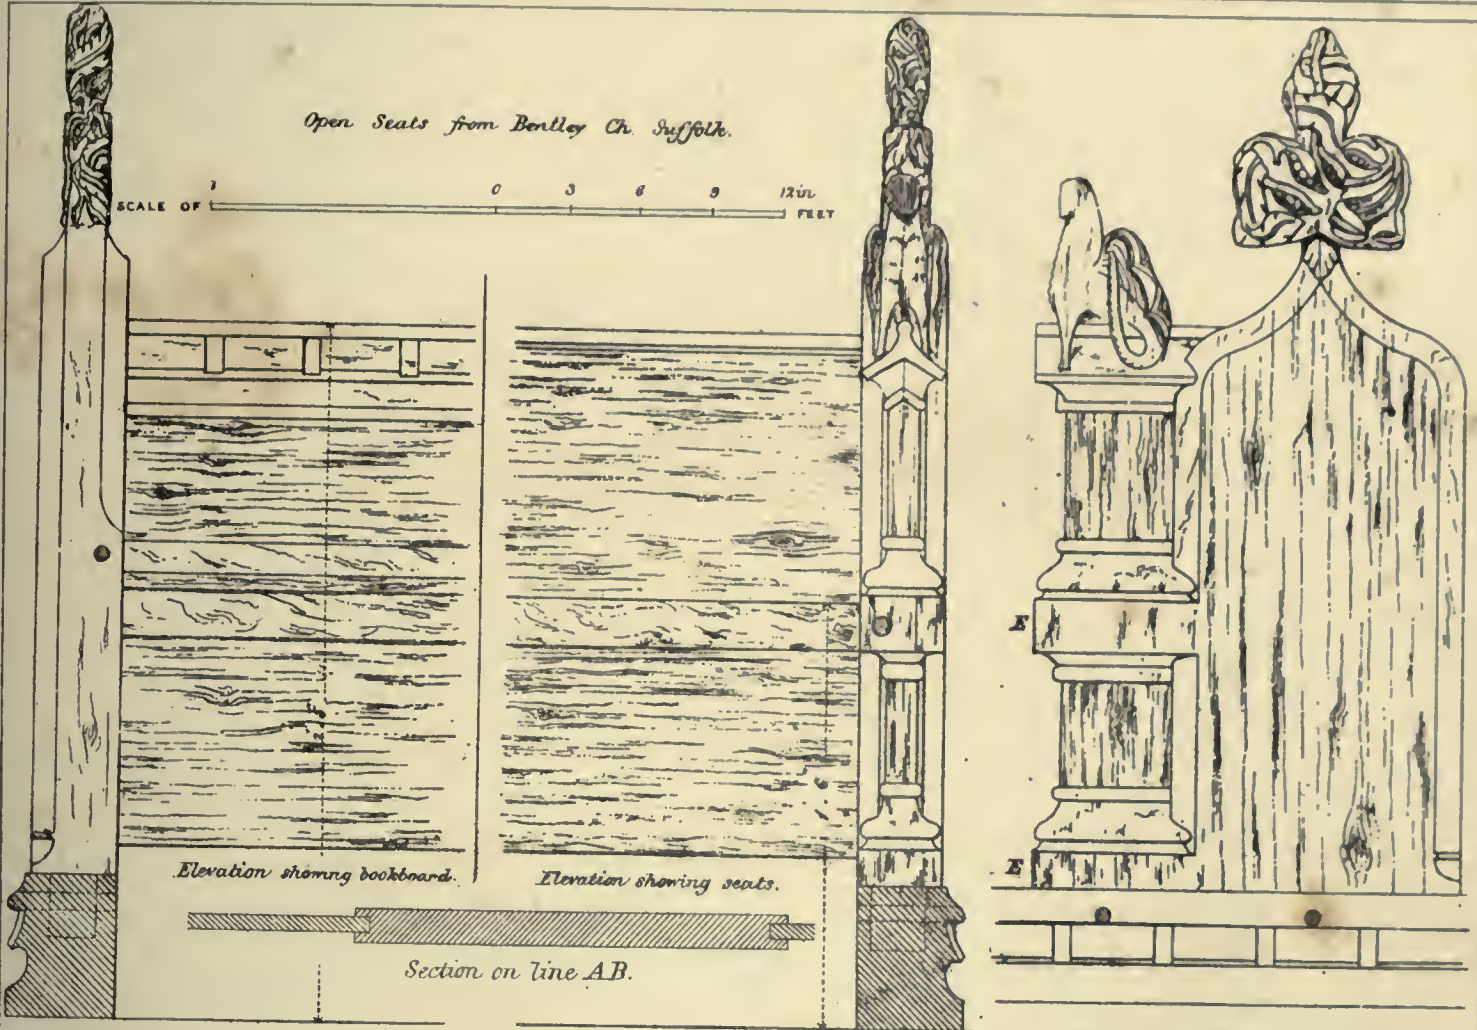 Open Seats from Bentley Ch. Suffolk.
1 0 3 6 9 12in
SCALE OF FEET
E
E
Elevation showing bookboard.
Elevation showing seats.
Section on line A.B.